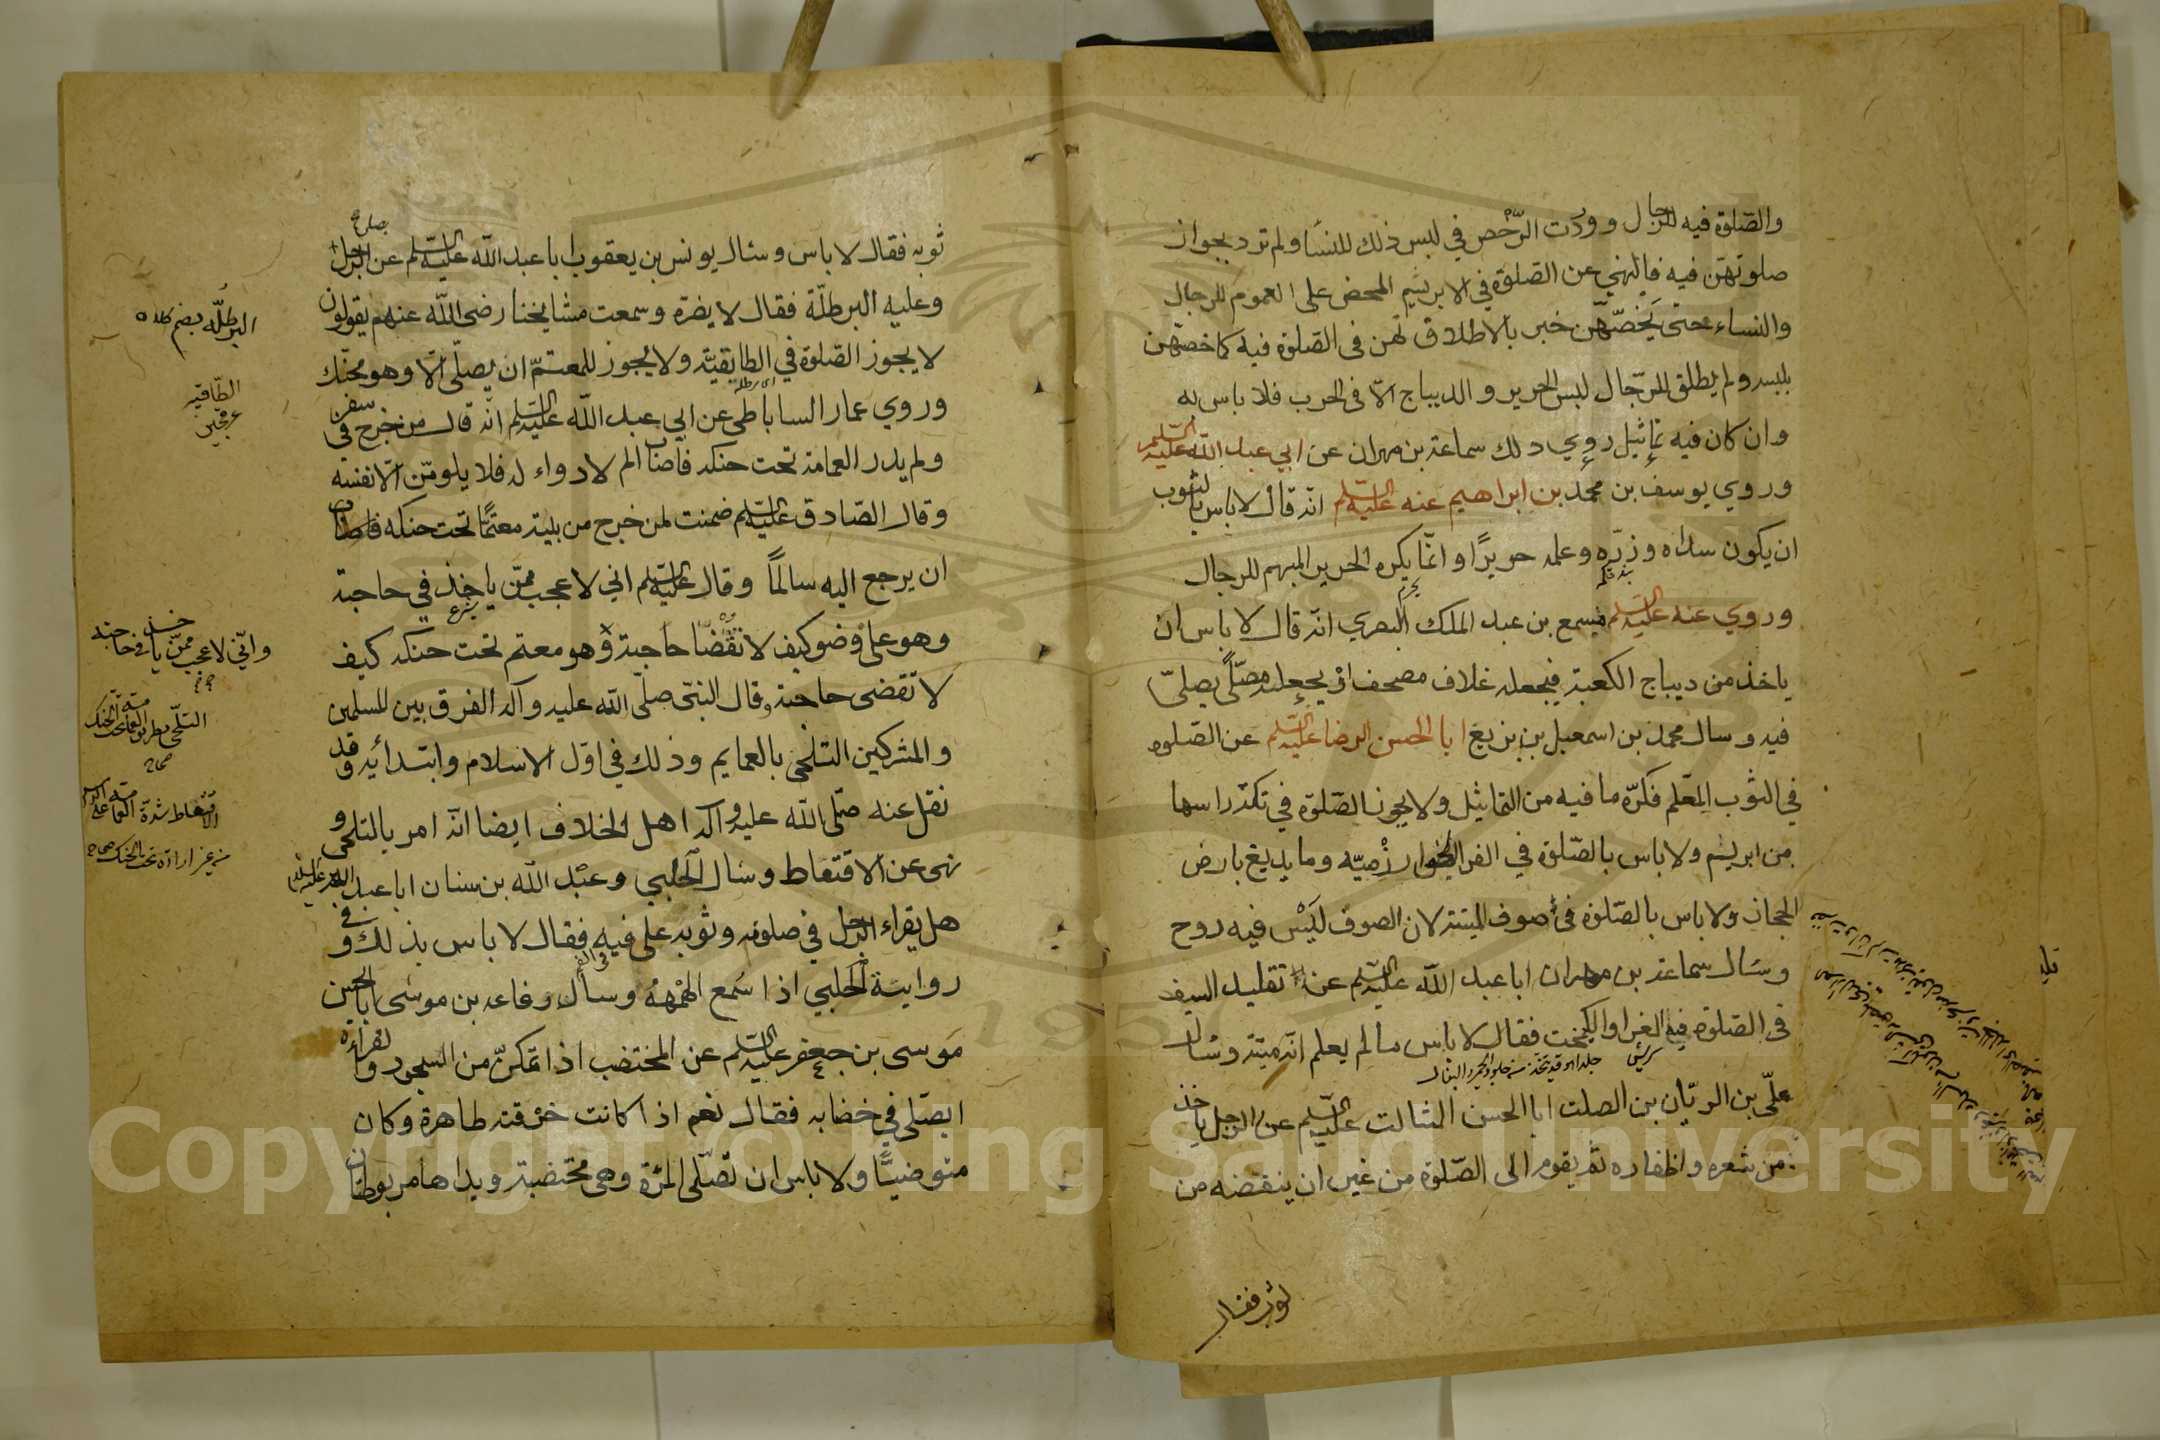 والصّلوة فيه للرجال ووردت الرّخص في لبس ذلك للنسآ ولم ترد بجواز
صلوتهنّ فيه فالنهي عن الصّلوة في الابريشم المحض على العموم للرجال
والنساء حتى يَخصّهن خبر بالاطلاق لهن فى الصّلوة فيه كما خصّهن
بلبسه ولم يطلق للرّجال لبس الحرير والديباج الّا فى الحرب فلا باس به
وان كان فيه تماثيل روي ذلك سماعة بن مهران عن ابي عبد الله عليه السّلم
وروي يوسف بن محمد بن ابراهيم عنه عليه السّلم انّه قال لا باس بالثوب
ان يكون سداه وزرّه وعلمه حريرًا وانّما يكره الحرير المبهم للرجال
وروي عنه عليه السّلم مسمع بن عبد الملك البصري انّه قال لا باس ان
ياخذ من ديباج الكعبة فيجعله غلاف مصحف اوْ يجعله مصّلًى يصلّي
فيه وسال محمد بن اسمعيل بن بزيع ابا الحسن الرضا عليه السّلم عن الصّلوه
في الثوب المعلم فكرّه ما فيه من التماثيل ولا يجوز الصّلوة في تكّة راسها
من ابريشم ولا باس بالصّلوة في الفرا الخوارزميّه وما يدبغ بارض
الحجاز ولا باس بالصّلوة في صوف الميتة لان الصوف ليْس فيه روح
وسَال سماعة بن مهران ابا عبد اللّه عليه السّلم عن تقليد السيف
فى الصّلوة فيه الغرا والكيمخت فقال لا باس ما لم يعلم انّه ميتة وسال
علّي بن الريّان بن الصلت ابا الحسن الثالث عليه السّلم عن الرجل ياخذ
من شعره واظفاره ثم يقوم الى الصّلوة من غير ان ينفضه من
ثوبه فقال
ثوبه فقال لا باس وسئال يونس بن يعقوب ابا عبد اللّه عليه السّلم عن الرجل يصلي
وعليه البرطلّة فقال لا يضرّه وسمعت مشايخنا رضى اللّه عنهم يقولون
لا يجوز الصّلوة في الطابقيّة ولا يجوز للمعتمّ ان يصلّى الّا وهو محنّك
وروي عمار الساباطي عن ابي عبد اللّه عليه السّلم انّه قال من خرج في سفر
ولم يدر العمامة تحت حنكه فاصابه الم لا دواء له فلا يلومّن الّا نفسه
وقال الصّادق عليه السّلم ضمنت لمن خرج من بيته معتمًّا تحت حنكه
ان يرجع اليه سالمًا وقال عليه السّلم اني لاعجب ممّن ياخذ في حاجة
وهو على وضو كيف لا تقضا حاجته وهو معتم تحت حنكه كيف
لا تقضى حاجته وقال النبّى صلّى اللّه عليه وآله الفرق بين المسلمين
والمشركين التلحّى بالعمايم وذلك في اوّل الاسلام وابتدائه وقد
نقل عنه صّلى اللّه عليه وآله اهل الخلاف ايضا انّه امر بالتلحي و
نهى عن الاقتعاط وسَال الحَلبي وعبْد اللّه بن سنان ابا عبد اللّه عليه السلم
هل يقراء الرجل في صلوته وثوبه على فيه فقال لا باس بذلك و في
رواية الحَلبي اذا سمع الهمْهمة وسأل رفاعه بن موسى ابا الحسن
مَوسى بن جعفر عليه السّلم عن المختضب اذا تمكّن من السجود والقراءة
ايصّلى في خضابه فقال نعم اذا كانت خرقته طاهرة وكان
متوضيًّا ولا باس ان تصّلى المرّة وهى مختضبة ويداها مربوطتان
البرطُلّه بضم
الطّاقيه
عرقچين
وانّي لاعجب ممّن ياخذ في حاجته
التلحّي تطريق العمامة تحت الحنك
الاقتعاط شدّة العمامة على الراس
من غير ادارة تحت الحنك صحاح